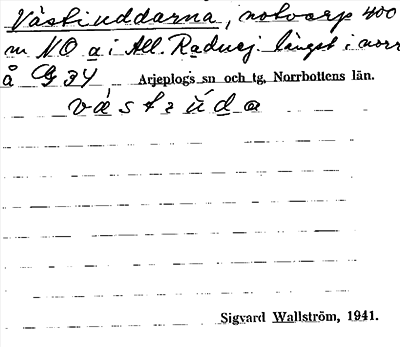 Västiuddarna, notvarp 400
m NO a i All. Raduej. längst i norr
å Cg 34, Arjeplogs sn och tg, Norrbottens län.
västiúda
Sigvard Wallström, 1941.